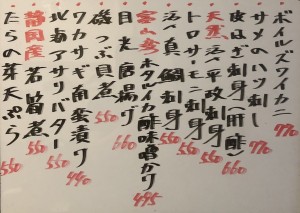 ボイルズワイカニ 770
サメのハツ刺し 770
皮はぎ刺身(肝酢) 660
天然活〆平政刺身 550
トロサーモン刺身 550
活〆真鯛刺身 550
富山産ホタルイカ酢味噌がけ 495
目光唐揚げ 660
磯つぶ煮 550
ワカサギ南蛮漬け 440
北海アサリバター 550
静岡産若皆煮 550
たらの芽天ぷら 550